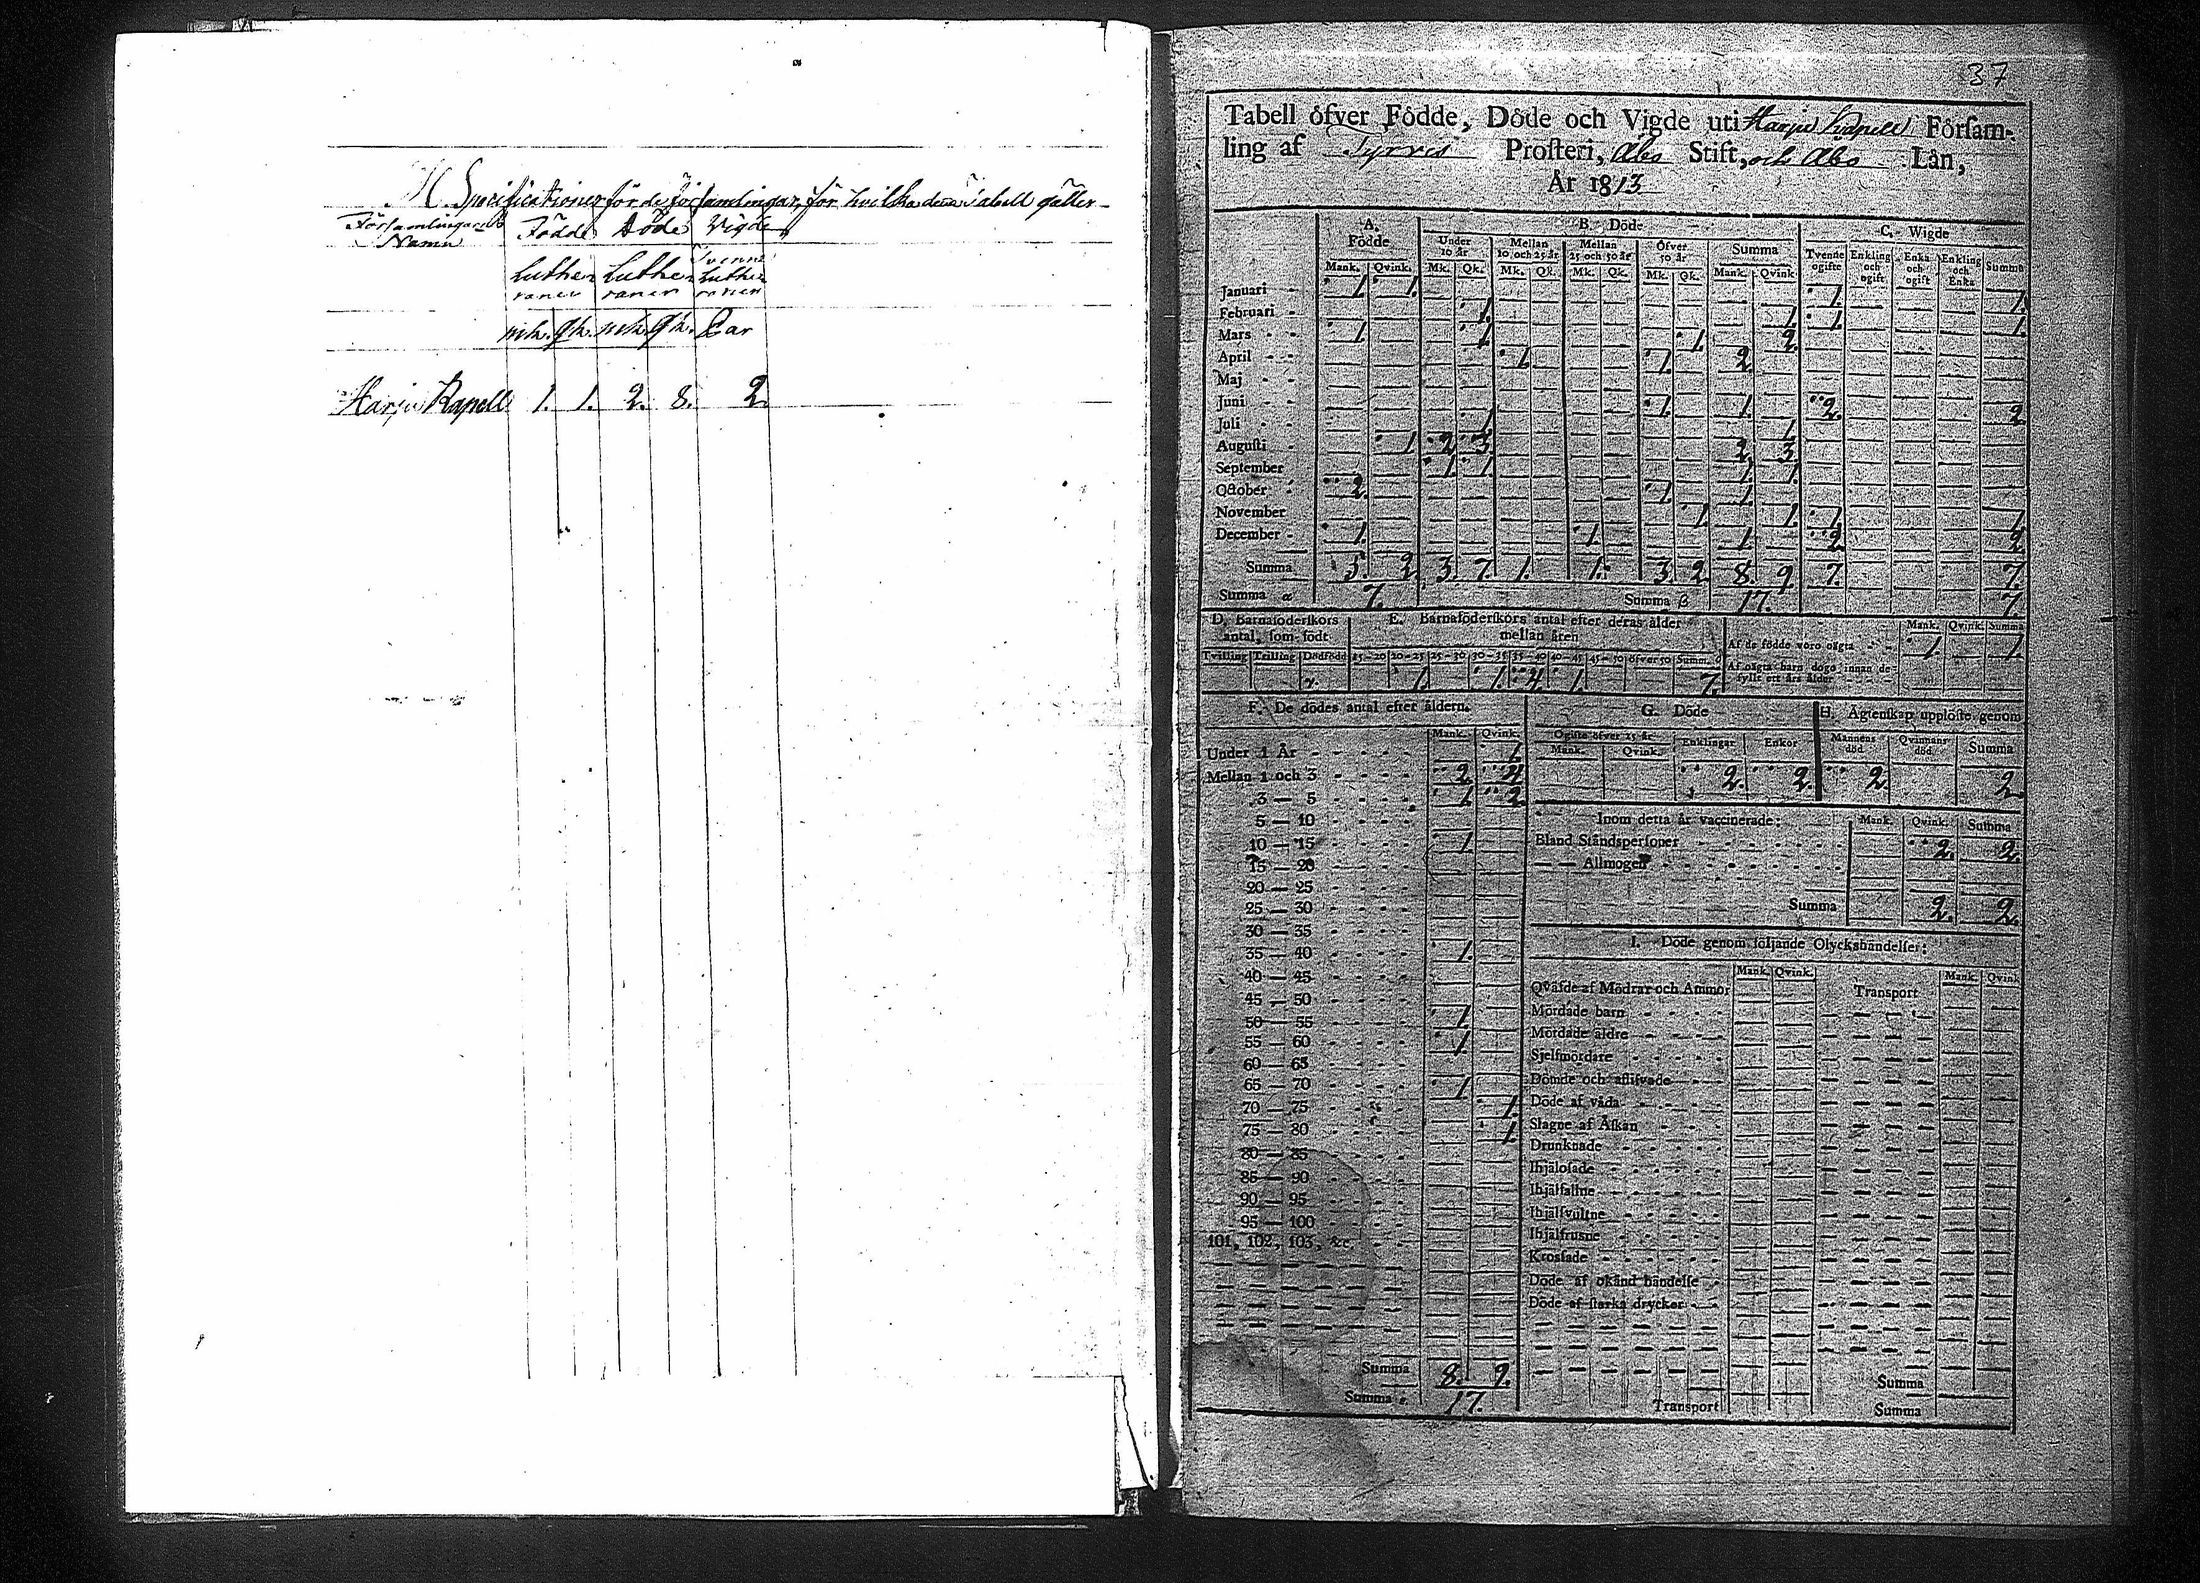 H. Specificationer för de församlingar, för hvilka denna Tabell gäller
Församlingarnes Namn Födde Döde Vigde
Lutheraner Lutheraner Lutheraner
mk. qk. mk. qk. Par
Harju Kapell 1. 1. 2. 8. 2.
37
Tabell öfver Födde, Döde och Vigde uti Harju Kapell Förſam-
ling af Tyrvis Proſteri, Åbo Stift, och Åbo Län,
År 1813
A. Födde B. Döde C. Wigde
Under 10 år Mellan 10 och 25 år Mellan 25 och 50 år Öfver 50 år Summa Tvende ogifte Enkling och ogift Enka och ogift Enkling och Enka Summa
Mank. Qvink. Mk. Qk. Mk. Qk. Mk. Qk. Mk. Qk. Mank. Qvink.
Januari 1. 1. 1. 1.
Februari 1. 1. 1. 1.
Mars 1. 1. 1. 2.
April 1. 1. 2.
Maj
Juni 1. 1. 2. 2.
Juli 1. 1.
Auguſti 1. 2. 3. 2. 3.
September 1. 1. 1. 1.
October 2. 1. 1.
November 1. 1. 1. 1.
December 1. 1. 1. 2. 2.
Summa 5. 2. 3. 7. 1. 1. 3. 2. 8. 9. 7. 7.
Summa α 7. Summa β 17. 7.
D. Barnaföderſkors antal, ſom födt
Tvilling Trilling Dödfödd
E. Barnaföderſkors antal efter deras ålder mellan åren
15—20 20—25 25—30 30—35 35—40 40—45 45—50 öfver 50 Summ.
1. 1. 4. 1. 7.
Mank. Qvink. Summa
Af de födde voro oägta 1. 1.
Af oägta barn dogo innan de
fyllt ett års ålder
F. De dödes antal efter åldern.
Mank. Qvink.
Under 1 År 1.
Mellan 1 och 3 2. 4.
3 — 5 1. 2.
5 — 10
10 — 15 1.
15 — 20
20 — 25
25 — 30
30 — 35
35 — 40 1.
40 — 45
45 — 50
50 — 55 1.
55 — 60 1.
60 — 65
65 — 70 1.
70 — 75 1.
75 — 80 1.
80 — 85
85 — 90
90 — 95
95 — 100
101, 102, 103, &c.
Summa 8. 9.
Summa 17.
G. Döde
Ogifte öfver 25 år Enklingar Enkor
Mank. Qvink.
2. 2.
H. Ägtenſkap upplöſte genom
Mannens död Qvinnans död Summa
2. 2.
Inom detta år vaccinerade: Mank. Qvink. Summa
Bland Ståndsperſoner 2. 2.
— — Allmogen
Summa 2. 2.
I. Döde genom följande Olyckshändelſer:
Mank. Qvink. Mank. Qvink
Qväfde af Mödrar och Ammor Transport
Mördade barn
Mördade äldre
Sjelfmördare
Dömde och aflifvade
Döde af våda
Slagne af Åſkan
Drunknade
Ihjälofade
Ihjälfallne
Ihjälſvultne
Ihjälfrusne
Kroſſade
Döde af okänd händelſe
Döde af ſtarka drycker
Summa
Transport Summa